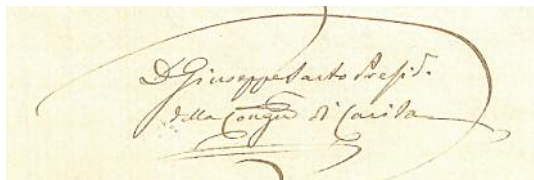 D. Giuseppe Sarto Presid.
della Congr di Carita